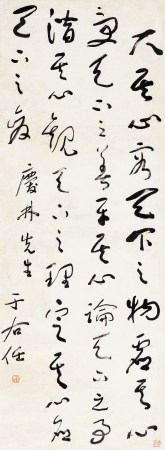 大其心容天下之物虛其心
受天下之善平其心論天下之事
潛其心觀天下之理定其心應
天下之變
慶林先生
于右任